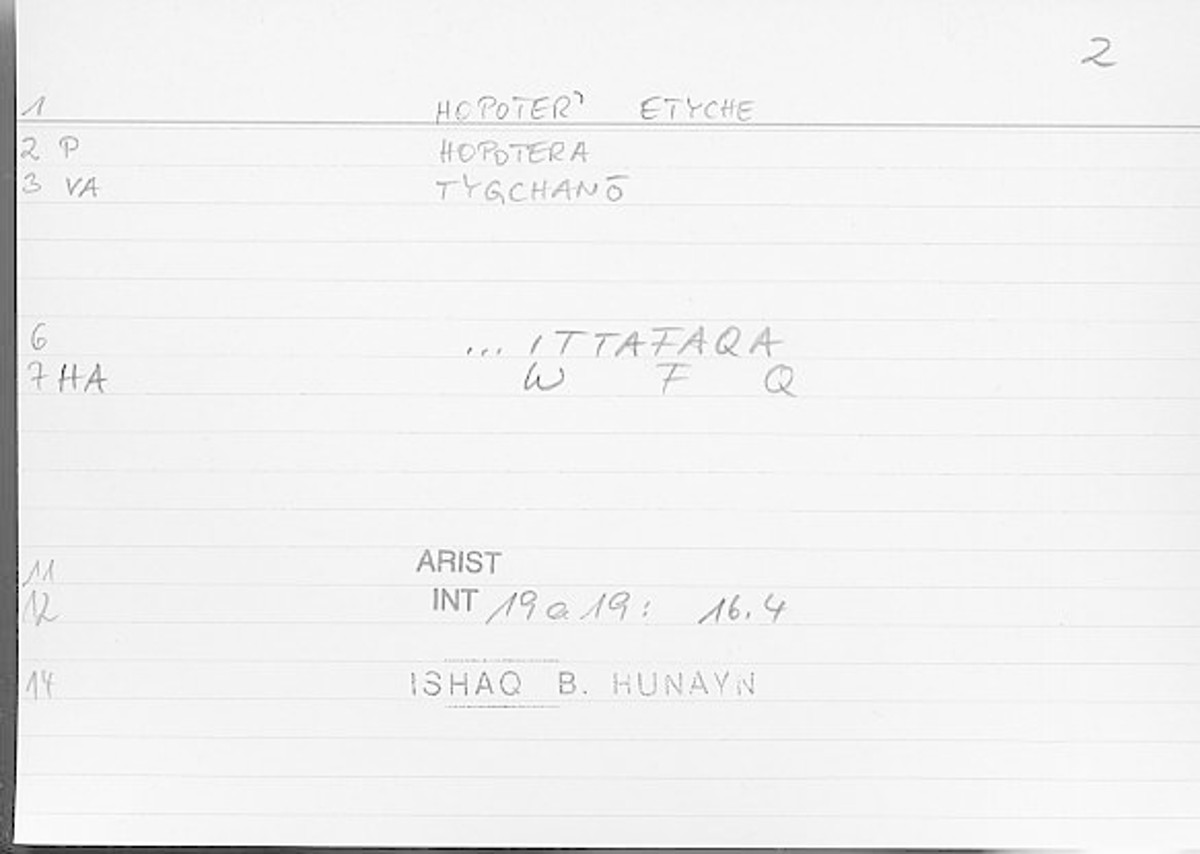 2
1 HOPOTER' ETYCHE
2 P HOPOTERA
3 VA TYGCHANŌ
6 ... ITTAFAQA
7 HA W F Q
11 ARIST
12 INT 19a19: 16.4
14 ISHAQ B. HUNAYN